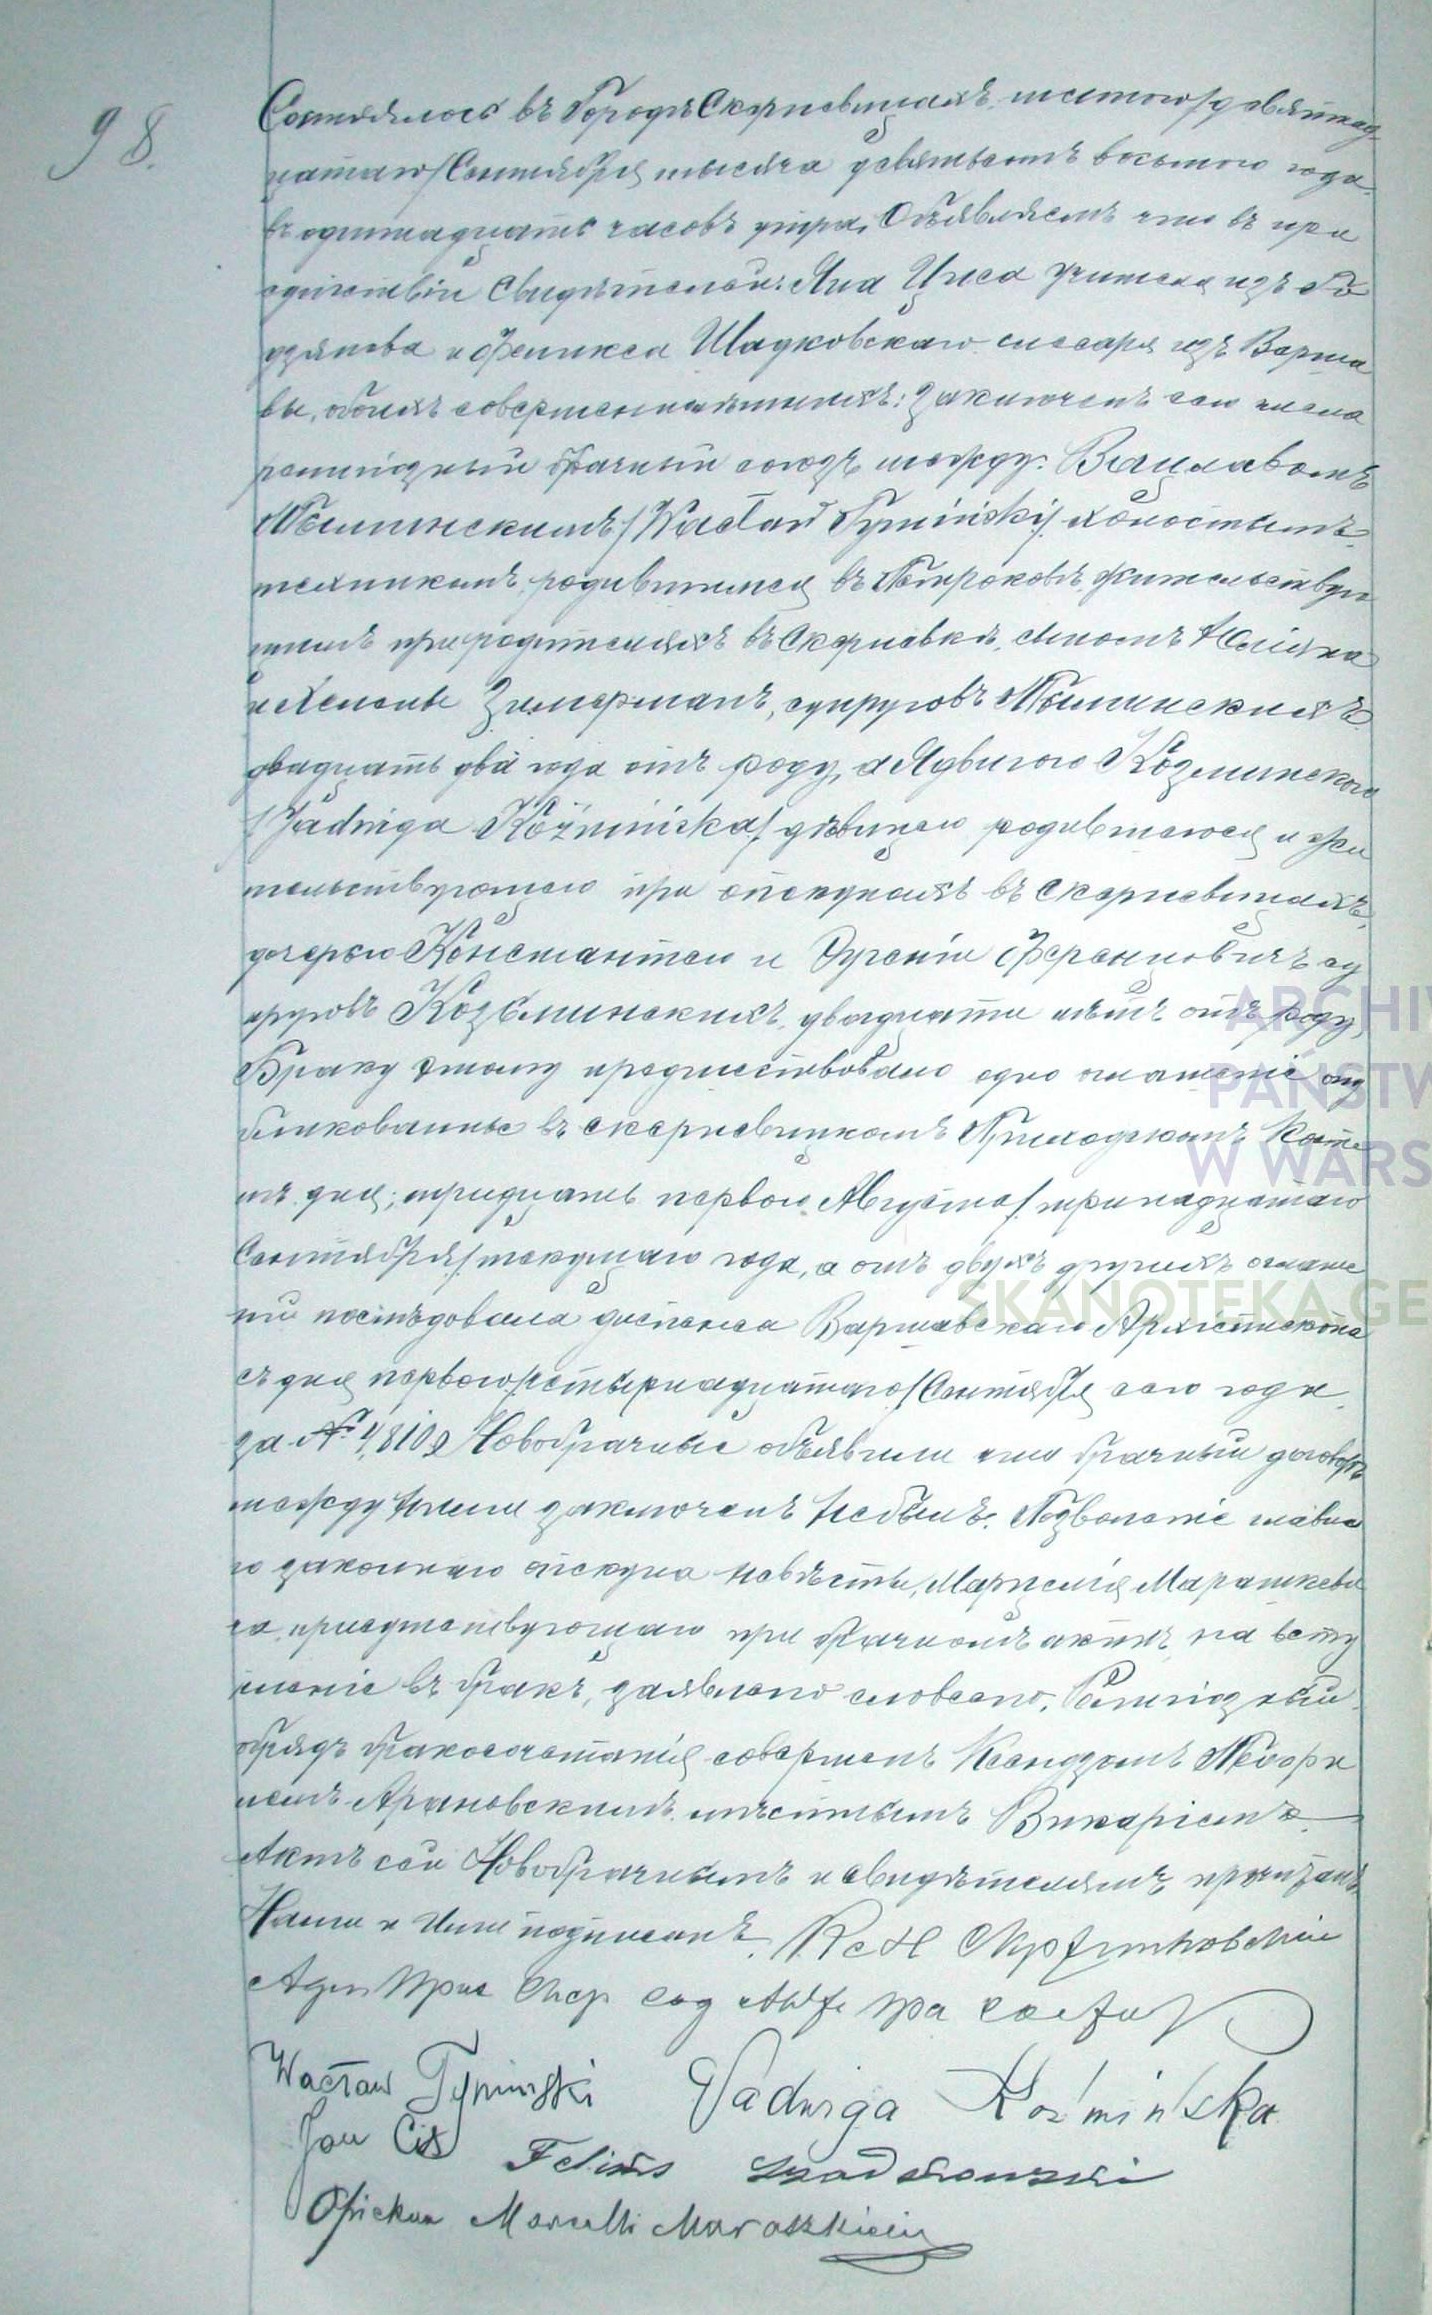 98.
Состоялось въ Городѣ Скерневицахъ, шестого/девятнад
цатаго/Сентября тысяча девятьсотъ восьмого года
въ одиннадцать часовъ утра. Объявляемъ что въ при
сутствіи свидѣтелей: Яна Циса учителя изъ
и Феликса Шадковскаго слесаря изъ Варша
вы, обоихъ совершеннолѣтнихъ: заключенъ сего числа
религіозный брачный союзъ между: Вацлавомъ
Тыминскимъ/Wacław Tymiński/ холостымъ
техникомъ, родившимся въ Петроковѣ жительствую
щимъ при родителяхъ въ Скерневкѣ, сыномъ Юліяна
и Хелены Зимерманъ, супруговъ Тыминскихъ
двадцать два года отъ роду, а Ядвигою Козминскою
/Jadwiga Koźmińska/ дѣвицею родившеюся и жи
тельствующею при опекунахъ въ Скерневицахъ,
дочерью Константего и Еугеніи Ференцовичъ су
пруговъ Козьминскихъ, двадцати лѣтъ отъ роду,
Браку этому предшествовало одно оглашеніе опу
бликованные въ Скерневицкомъ Приходскомъ Косте
лѣ дня; тридцать первого Августа/тринадцатаго
Сентября/текущаго года, а отъ двухъ другихъ оглаше
ній послѣдовала диспенса Варшавскаго Архіепископа
съ дня первого/четырнадцатаго/Сентября сего года
за № 4810. Новобрачные объявили что брачный договоръ
между ними заключенъ небылъ. Позволеніе главна
го законнаго опекуна невѣсты, Марцелія Марашкеви
ча, присутствующаго при брачномъ актѣ, на всту
пленіе въ бракъ, заявлено словесно. Религіозный
обрядъ бракосочетанія совершенъ Ксендзомъ
Арановскимъ мѣстнымъ Викаріемъ.
Актъ сей Новобрачнымъ и свидѣтелямъ прочитанъ
Нами и Ими подписанъ. Кс Н
Прих Скер Сод
Wacław Tymiński Jadwiga Koźmińska
Jan Cis Feliks Szadkowski
Opiekun Marcelli Maraszkiewicz
ARCHIW
PAŃSTW
W WARS
SKANOTEKA.GE